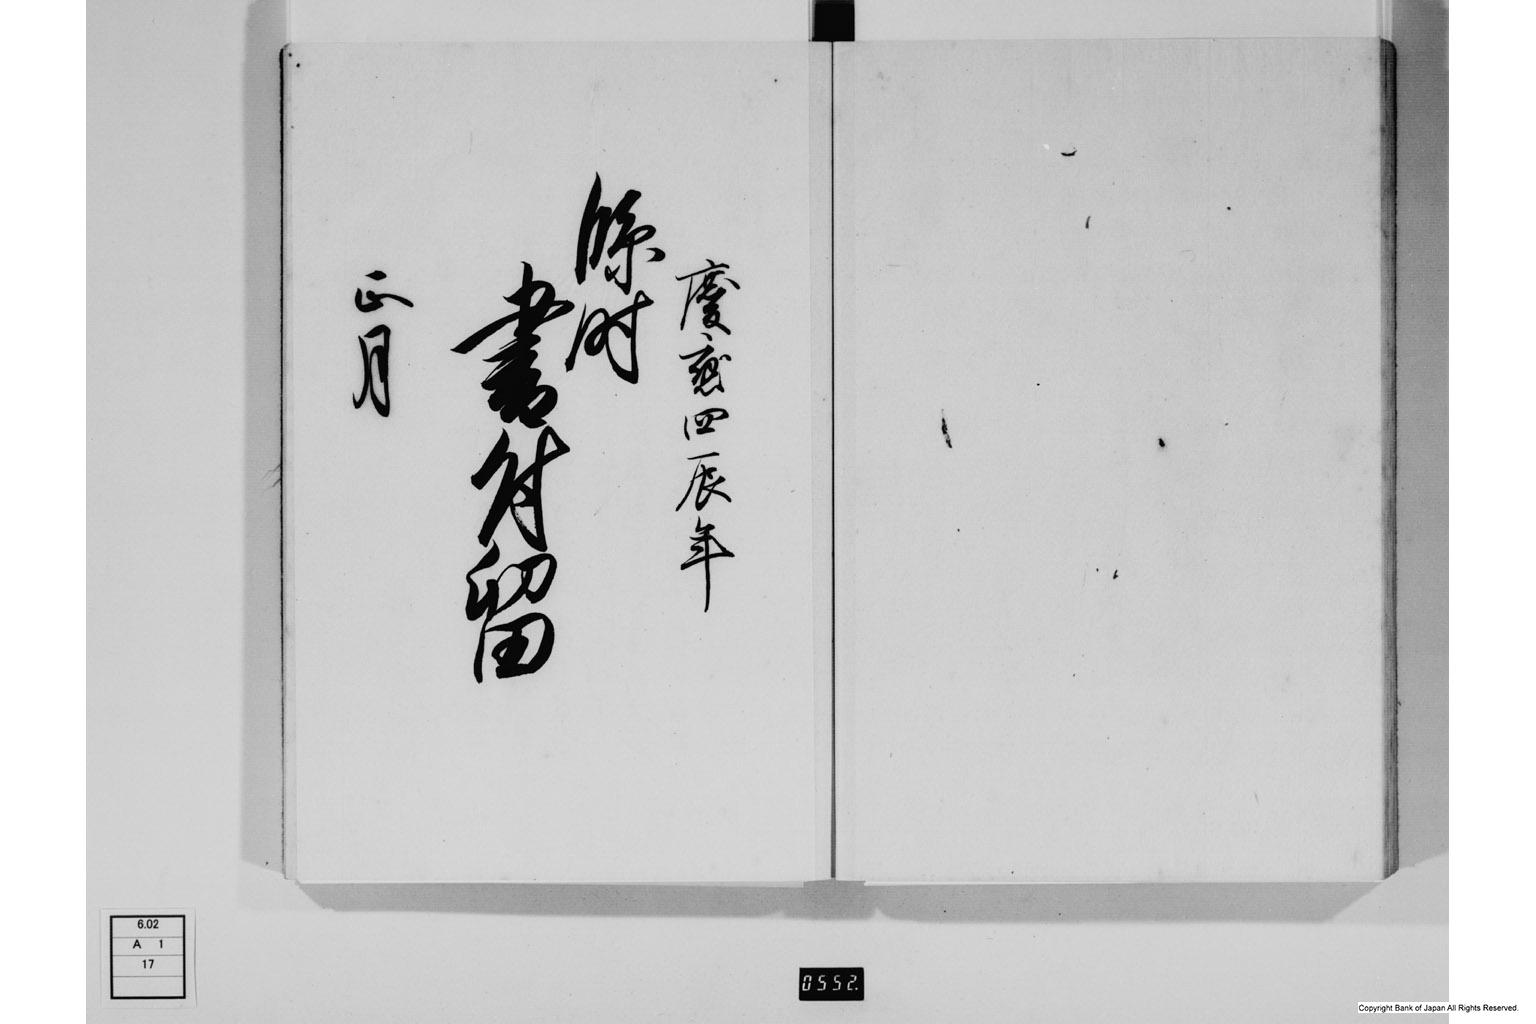 慶應四辰年
臨時
書付留
正月
6.02
A 1
17
0552.
Copyright Bank of Japan All Rights Reserved.